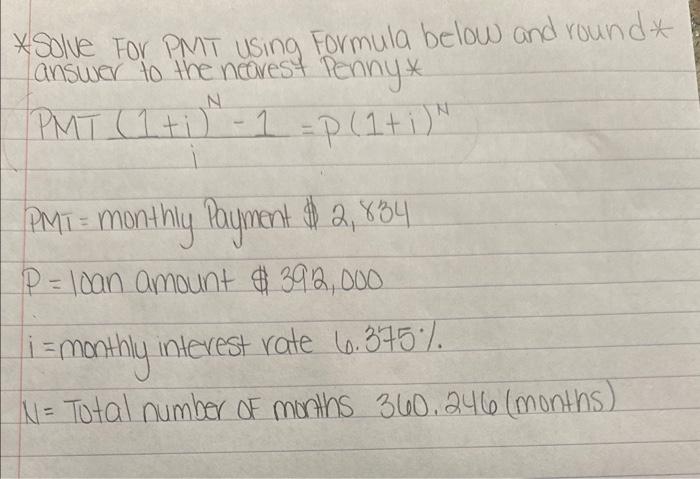 *Solve For PMT using Formula below and round*
answer to the nearest Penny*
PMT (1+i)^N - 1 = P(1+i)^N
i
PMT = monthly Payment $ 2,834
P = loan amount $ 392,000
i = monthly interest rate 6.375%.
N = Total number OF months 360.246 (months)